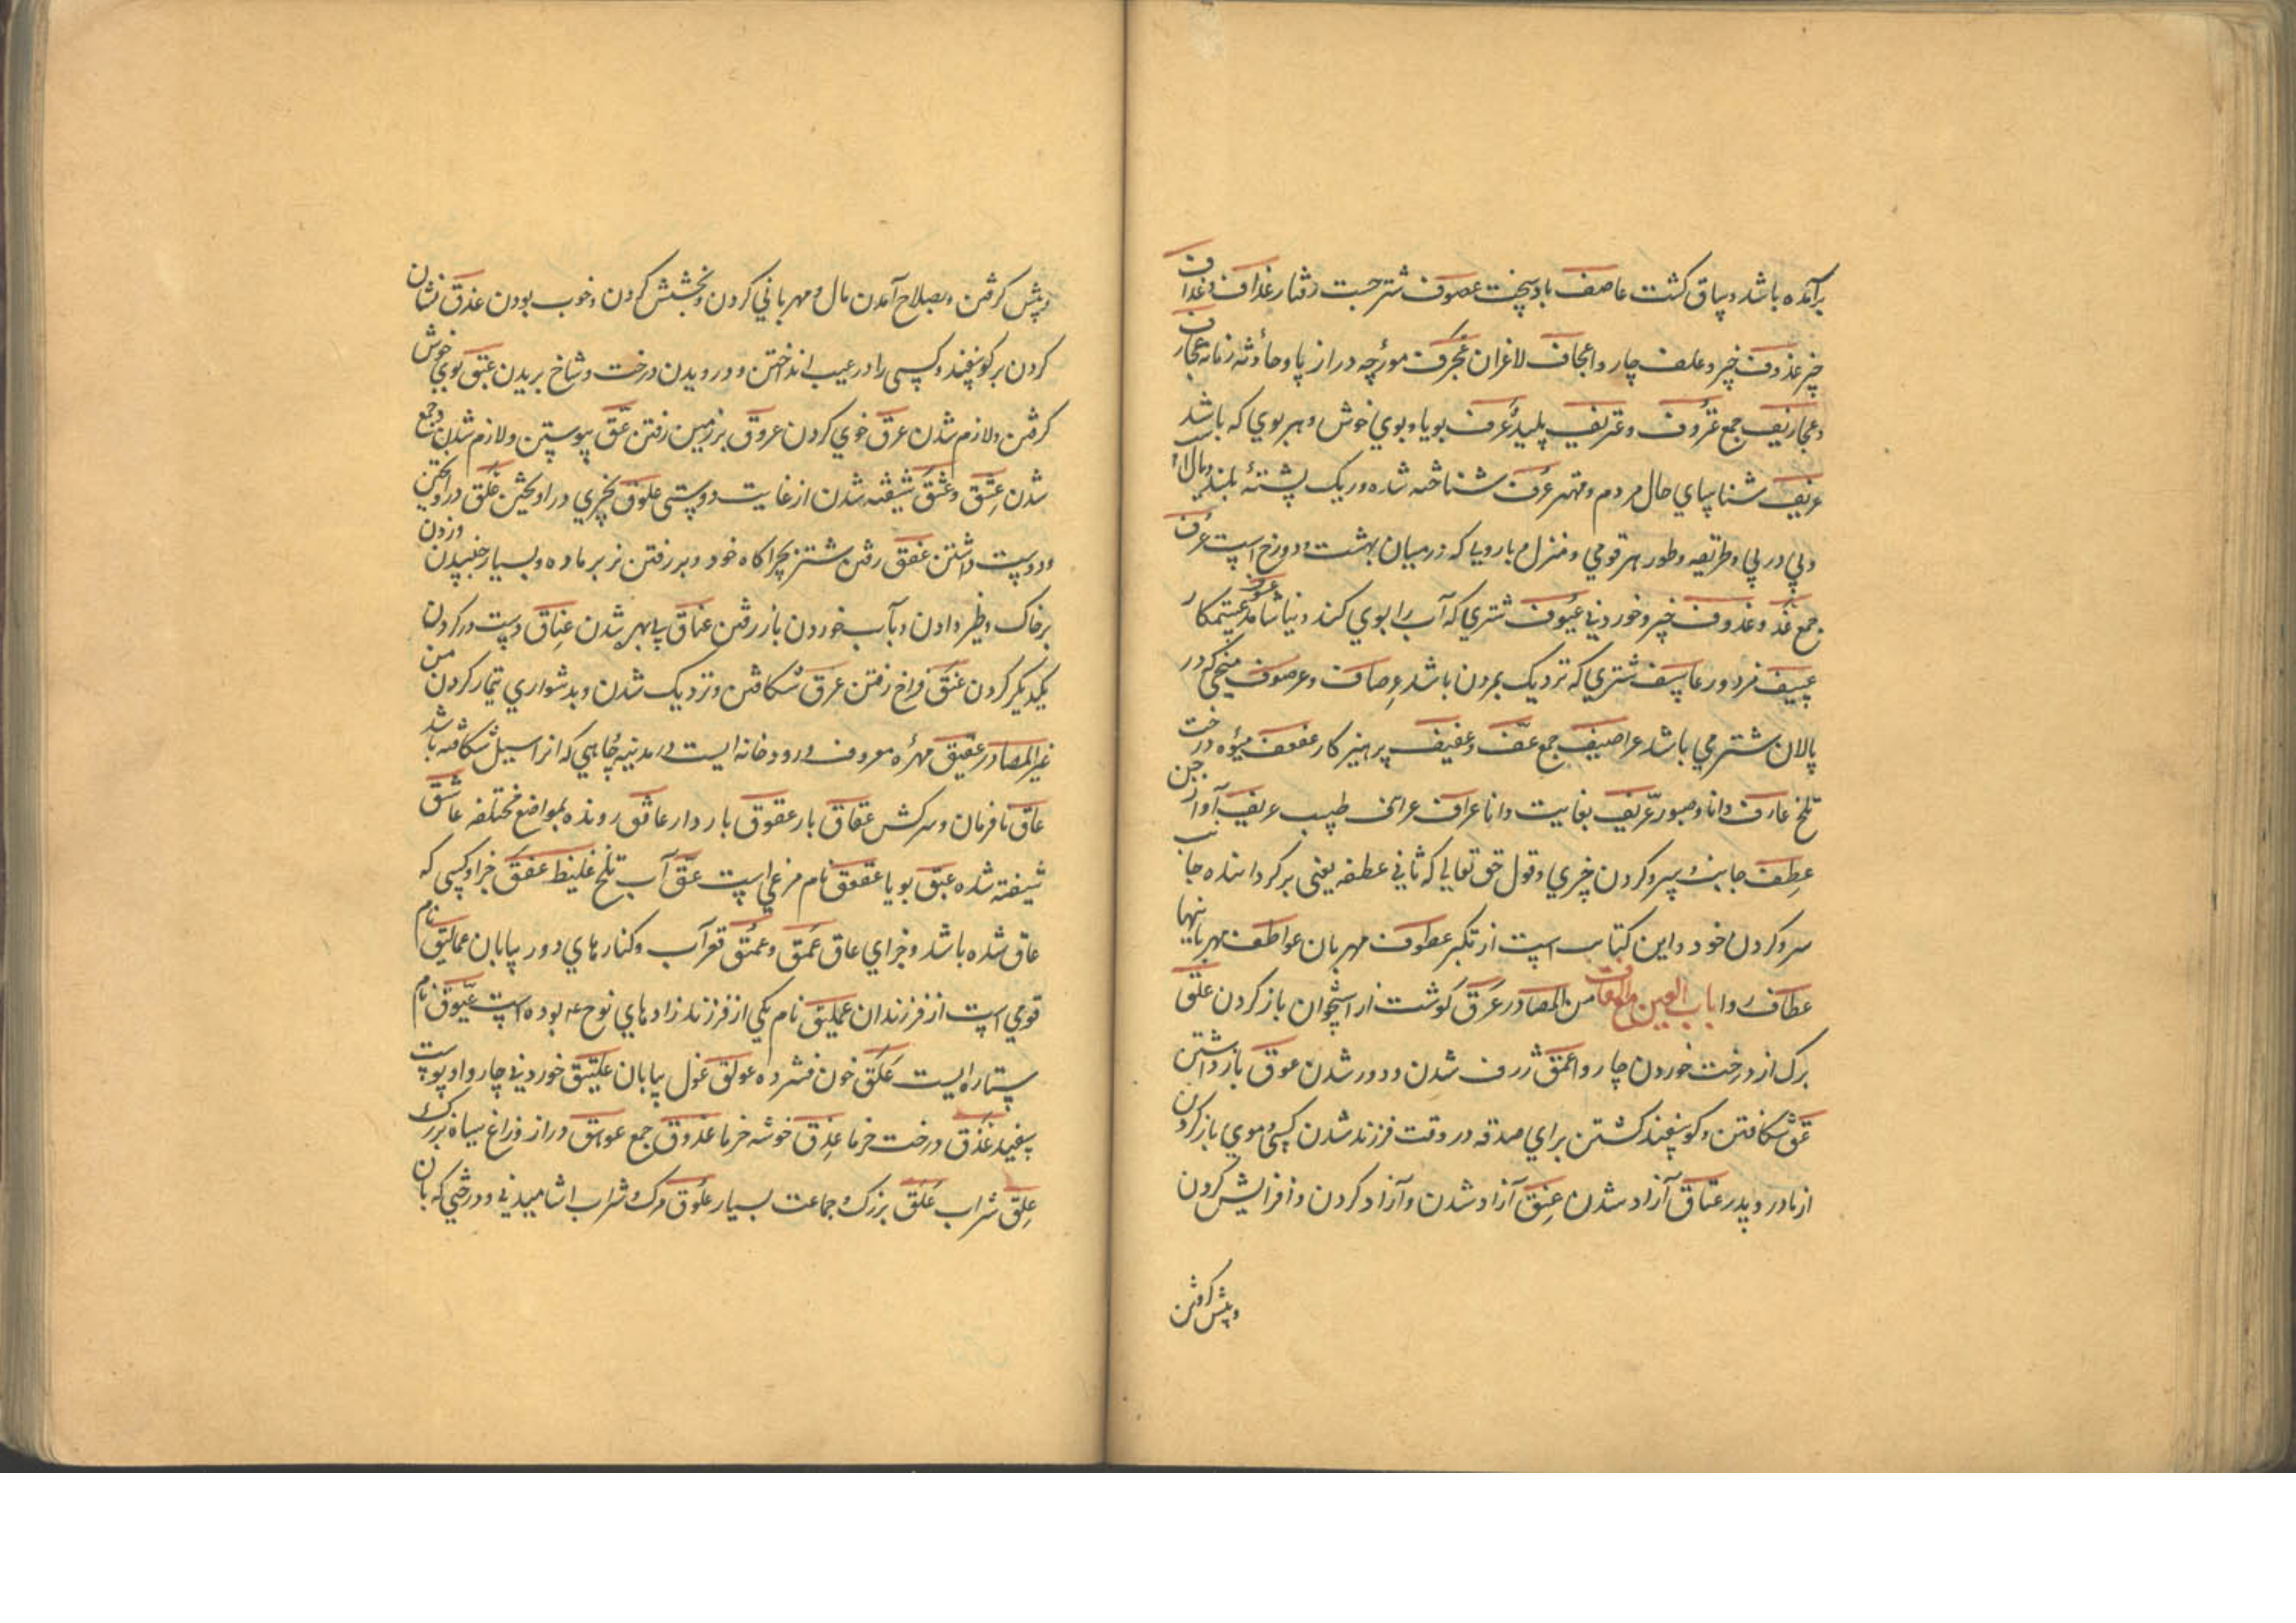 برآمده باشد و ساق کشت عاصف باد سخت عصوف شتر جست رفتار عذاف و عذاف
چیز عذوف چیز و علف چاروا عجاف لاغران عجرف مورچه دراز پا و حادثه زمانه عجارف
و عجاریف جمع عتروف و عتریف پلید عرف بویا و بوی خوش و هر بوی که باشد
عریف شناسای حال مردم و مهتر عرف شناخته شده و ریک پشتهٔ بلند و یال اسب
و پی در پی و طریقه و طور هر قومی و منزل که در میان بهشت و دوزخ است عرف
جمع عذ و عذوف چیز و خوردنی عیوف شتری که آب را بوی کند و نیاشامد عتمکار
عسیف مزدور عاسف شتری که نزدیک بمردن باشد عصاف و عرصوف میخی که در
پالان شتر می باشد عراصیف جمع عف و عفیف پرهیزکار عفعف میوه درخت
تلخ عارف دانا و صبور عریف بغایت دانا عراف طبیب عریف آواز جن
عطف جانب و سپر و کردن چیزی و قول حق تعالی که ثانی عطفه یعنی برکرداننده جانب
سر و کردن خود و این کتاب است از تکبر عطوف مهربان عواطف مهربانیها
عطاف ردا باب العین مع القاف من المصادر عرق کوشت از استخوان باز کردن علق
برک از درخت خوردن چاروا عمق ژرف شدن و دور شدن عوق بازداشتن
عق شکافتن و کوسفند کشتن برای صدقه در وقت فرزند شدن کسی و موی باز کردن
از مادر و پدر عتاق آزاد شدن عتق آزاد شدن و آزاد کردن و افزایش کردن
و پیش کرفتن
و پیش کرفتن و بصلاح آمدن مال و مهربانی کردن و بخشش کردن و خوب بودن عذق نشان
کردن بر کوسفند و کسی را در عیب انداختن و درویدن درخت و شاخ بریدن عبق بوی خوش
کرفتن و لازم شدن عرق خوی کردن عروق بر زمین رفتن عسق پیوستن و لازم شدن و جمع
شدن عشق و عشق شیفته شدن از غایت دوستی علوق بچیزی در اویختن علق در اویختن
و دوست داشتن عفق رفتن شتر بچراکاه خود و بر رفتن نر بر ماده و بسیار خسپیدن و زدن
بر خاک و ظفر دادن و بآب خوردن باز رفتن عناق بی بهر شدن عناق دست در کردن
یکدیکر کردن عنق فراخ رفتن عرق شکافتن و نزدیک شدن و بدشواری تیمار کردن من
غیر المصادر عقیق مهره معروف و رودخانه ایست در مدینه و جاهی که از سیل شکافته باشد
عاق نافرمان و سرکش عقاق بار عقوق باردار عافق رونده بمواضع مختلفه عاشق
شیفته شده عبق بویا عقعق نام مرغی است عق آب تلخ غلیظ عفق جزا و کسی که
عاق شده باشد و جزای عاق عمق و عمق قعر آب و کنارهای دور بیابان عمالیق نام
قومی است از فرزندان عملیق نام یکی از فرزند زادهای نوح عم بوده است عیوق نام
ستاره ایست علق خون فشرده عولق غول بیابان علیق خوردنی چاروا و پوست
سفید عذق درخت خرما عذق خوشه خرما عذوق جمع عوهق دراز و زاغ سیاه بزرک
علق شراب علق بزرک و جماعت بسیار علوق مرک و شراب اشامیدنی و درختی که بان